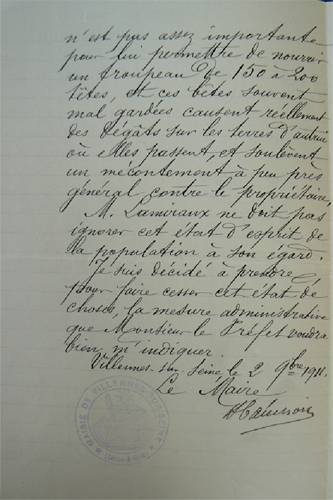 n'est pas assez importante
pour lui permettre de nourrir
un troupeau de 150 à 200
têtes, et ces bêtes souvent
mal gardées causent réellement
des dégâts sur les terres d'autrui
où elles passent, et soulèvent
un mécontentement à peu près
général contre le propriétaire,
M. Lamiraux ne doit pas
ignorer cet état d'esprit de
la population à son égard.
Je suis décidé à prendre
pour faire cesser cet état de
choses, la mesure administrative
que Monsieur le Préfet voudra
bien m'indiquer.
Villennes-sur-Seine, le 2 9bre 1911.
Le Maire
MAIRIE DE VILLENNES-SUR-SEINE
(Seine-&-Oise)